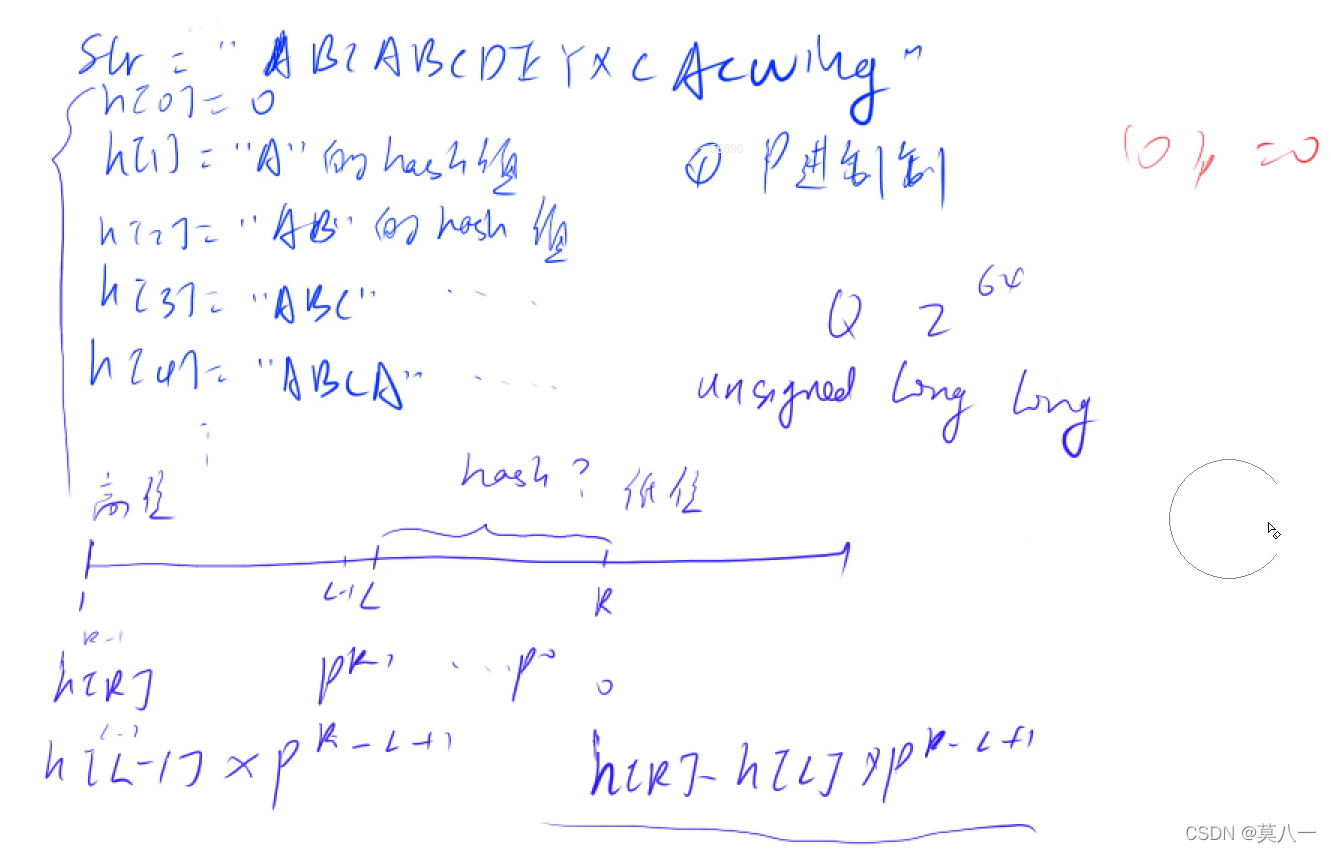 Str = "ABCABCDEYXCAcwing"
h[0] = 0
h[1] = "A"的hash值
① P进制
(0)p = 0
h[2] = "AB"的hash值
h[3] = "ABC" ....
Q 2^64
h[4] = "ABCA" .....
unsigned long long
hash?
高位
低位
1 L-1 L R
R-1
h[R] p^R-1 ... p^0 0
h[L-1] × p^R-L+1
h[R] - h[L] × p^R-L+1
CSDN @莫八一